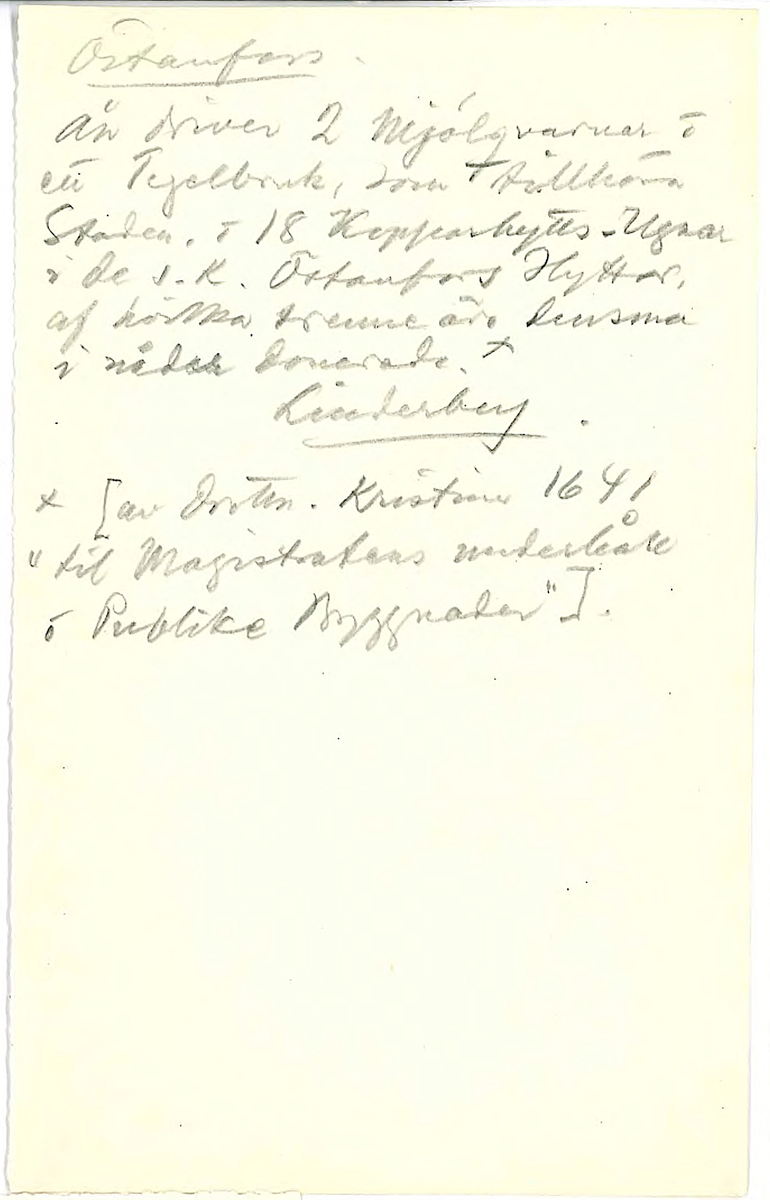 Östanfors.
Ån driver 2 Mjölqvarnar o
ett Tegelbruk, som tillhöra
Staden, o 18 Kopparhytts-Ugnar
i de s.k. Östanfors Hyttor,
af hvilka trenne äro densma
i nåder donerade. x
Linderberg.
x [av Drottn. Kristina 1641
"til Magistratens underhåll
o Publike Byggnader"].